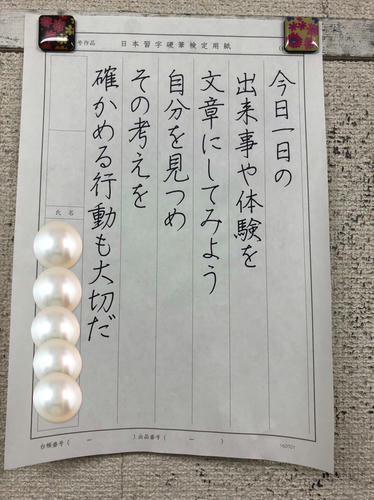 号作品
日本習字硬筆検定用紙
今日一日の
出来事や体験を
文章にしてみよう
自分を見つめ
その考えを
確かめる行動も大切だ
氏名
台帳番号(　－　)出品番号(　－　)